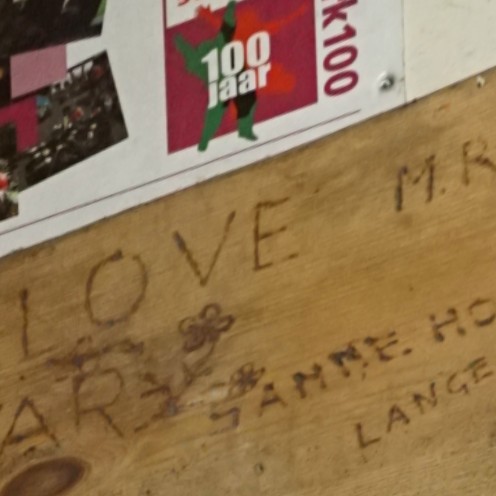 100
jaar
k100
LOVE
M.R
SANNE. HO
LANGE